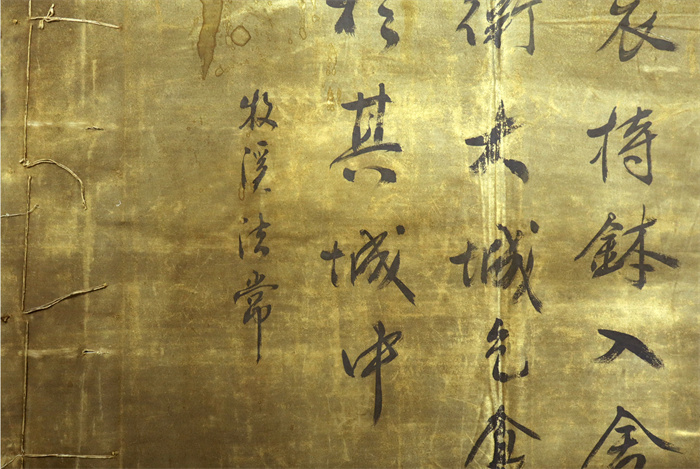 衣持鉢入舍
衛大城乞食
於其城中
牧溪法常